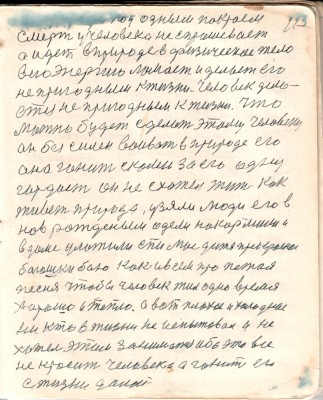 113
под одним покроем
смерть у человека не спрашивает
а идет в природе в физическое тело
его энергию ломает и делает его
непригодным к жизни. Человек дела-
ется не пригодным к жизни. Что
можно будет сделать этому человеку
он без силен воевать в природе его
она гонит с колеи за его одну
гордость он не схотел жит как
живет природа, узяли люди его в
нов рожденным одели накормили и
в доме уложили спи мое дитя прекрасное
баюшки баю как и всем про петая
песня чтобы человек жил одно время
хорошо и тепло. А вот плохое и холодное
ни кто в жизни не испытовал и не
хотел этим заниматся ибо это все
не красит человека а гонит его
с жизни далой